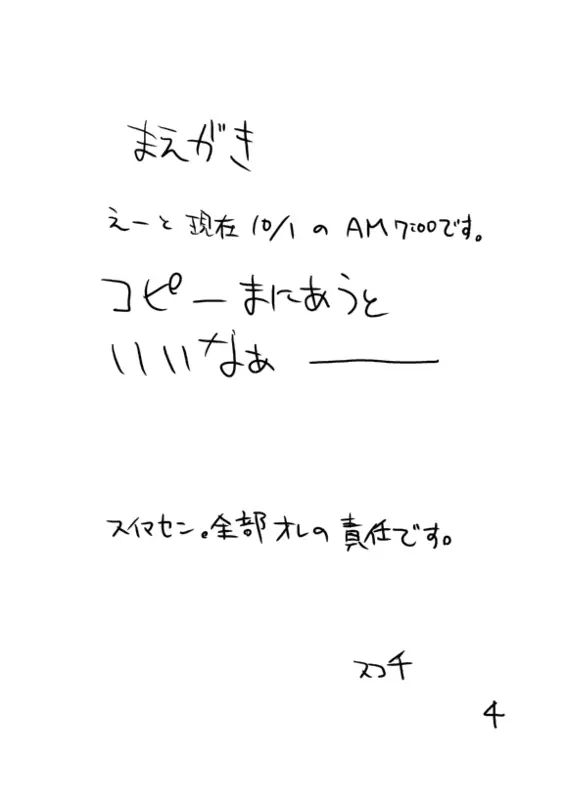 まえがき
えーと 現在 10/1 の AM 7:00です。
コピーまにあうと
いいなぁ ――
スイマセン。全部オレの責任です。
スコチ
4